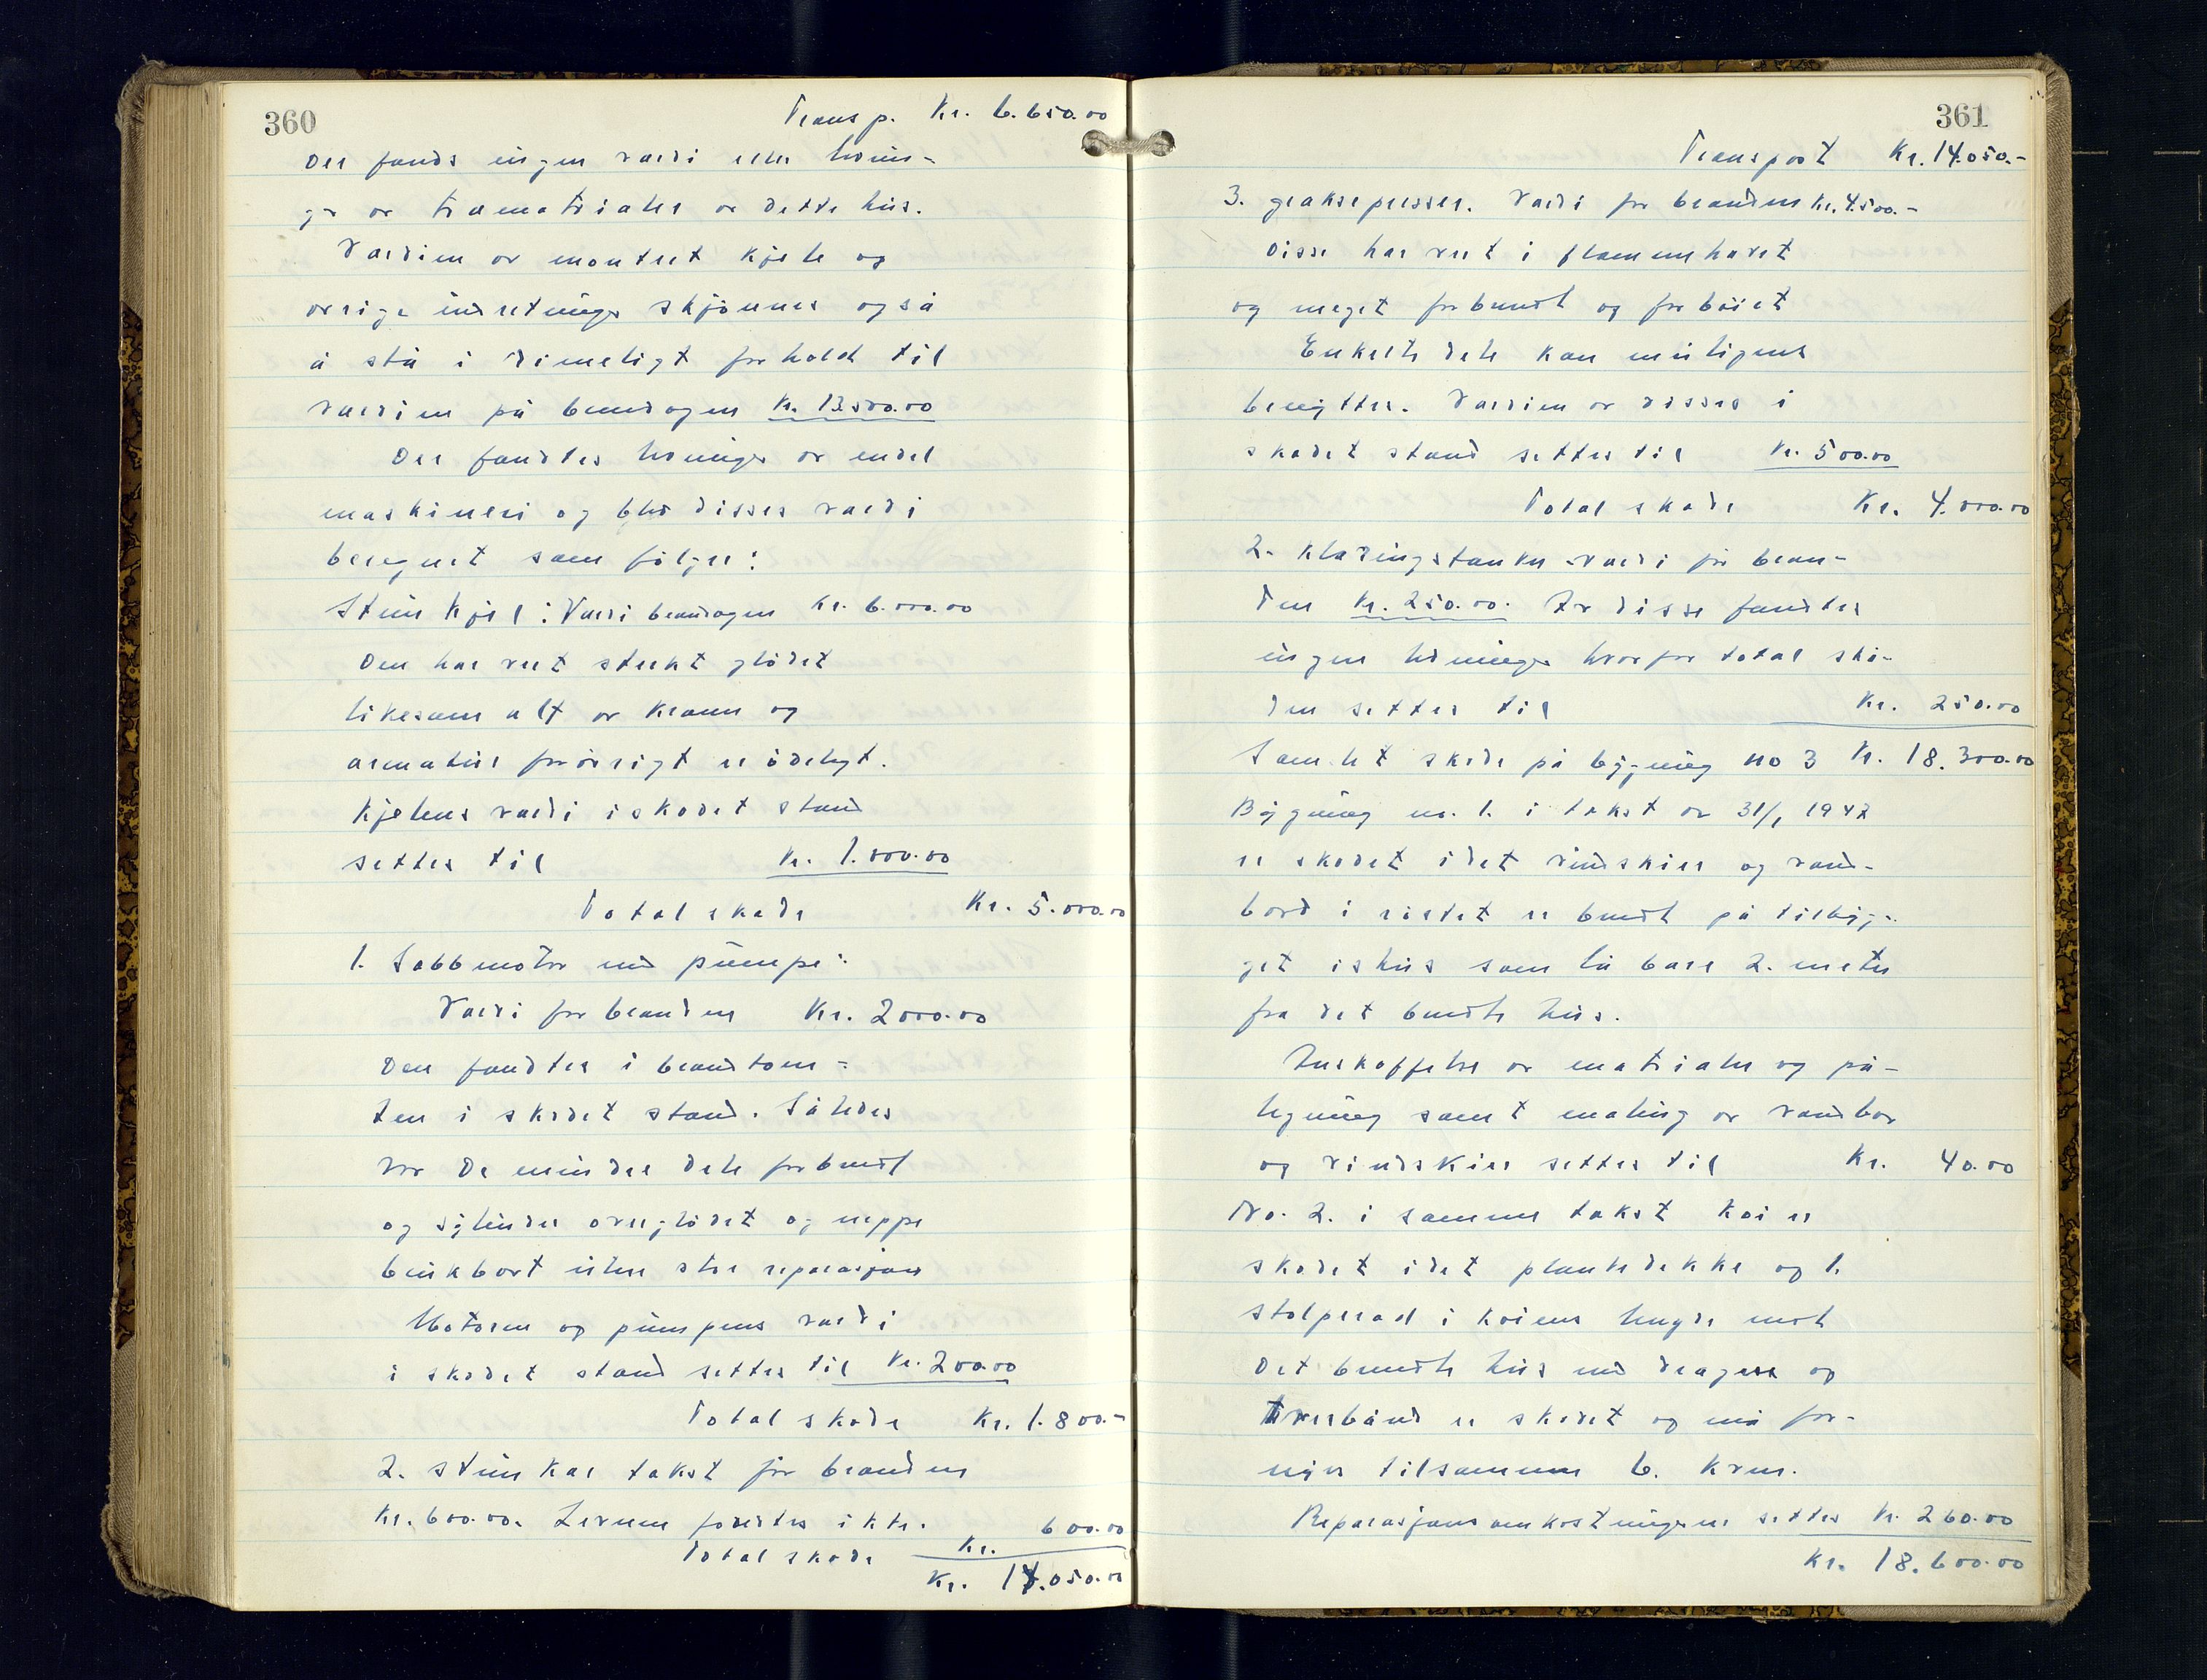 360
Transp. Kr. 6.650.00
Der fands ingen værdi eller levnin-
ger av træmatrialer av dette hus.
Værdien av montert kjele og
øvrige indretninger skjønnes også
å stå i rimeligt forhold til
værdien på branddagen Kr. 13.500.00
Der fandtes levninger av endel
maskineri og blev disses værdi
beregnet som følger:
Stim kjel: Værdi branddagen Kr. 6.000.00
Den har vert sterkt glødet
likesom alt av kraner og
armatur forøvrigt er ødelagt.
Kjelens værdi i skadet stand
settes til Kr. 1.000.00
Total skade Kr. 5.000.00
1. Sabbmotor med pumpe:
Værdi før branden Kr. 2000.00
Den fandtes i brandtom-
ten i skadet stand. Således
var de mindre dele forbrendt
og sylinder overglødet og neppe
brukbart uten stor reparasjon
Motoren og pumpens værdi
i skadet stand settes til Kr. 200.00
Total skade Kr. 1.800.-
2. stim kar takst før branden
Kr. 600.00. Levnen fandtes ikke.
Total skade Kr. 600.00
Kr. 14.050.00
361
Transport Kr. 14.050.-
3. graksepresser. Værdi før branden Kr. 4.500.-
Disse har vert i flammehavet
og meget forbrendt og forbøiet
Enkelte dele kan muligens
benyttes. Værdien av disses i
skadet stand settes til Kr. 500.00
Total skade Kr. 4.000.00
2. Klaringstanker - værdi før bran-
den Kr. 250.00. Av disse fandtes
ingen levninger hvorfor total ska-
den settes til Kr. 250.00
Samlet skade på bygning no 3 Kr. 18.300.00
Bygning no. 1. i takst av 31/1 1947
er skadet idet vindskier og vand-
bord i røstet er brendt på tilbyg-
get ishus som lå bare 2. meter
fra det brendte hus.
Anskaffelse av matrialer og på-
legning samt maling av vandbor
og vindskier settes til Kr. 40.00
No. 2. i samme takst Kai er
skadet idet plankedekke og 1.
stolperad i kaiens lengde mot
det brendte hus med dragere og
tverrbånd er skadet og må for-
nyes tilsammen 6. kvm.
Reparasjonsomkostningene settes Kr. 260.00
Kr. 18.600.00